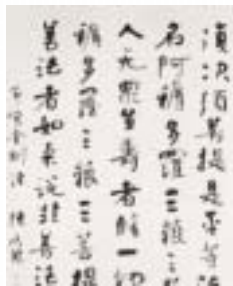 復次須菩提是平等法
名阿耨多羅三藐三
人无眾生壽者脩一切
耨多羅三藐三菩提
善法者如来说非善法